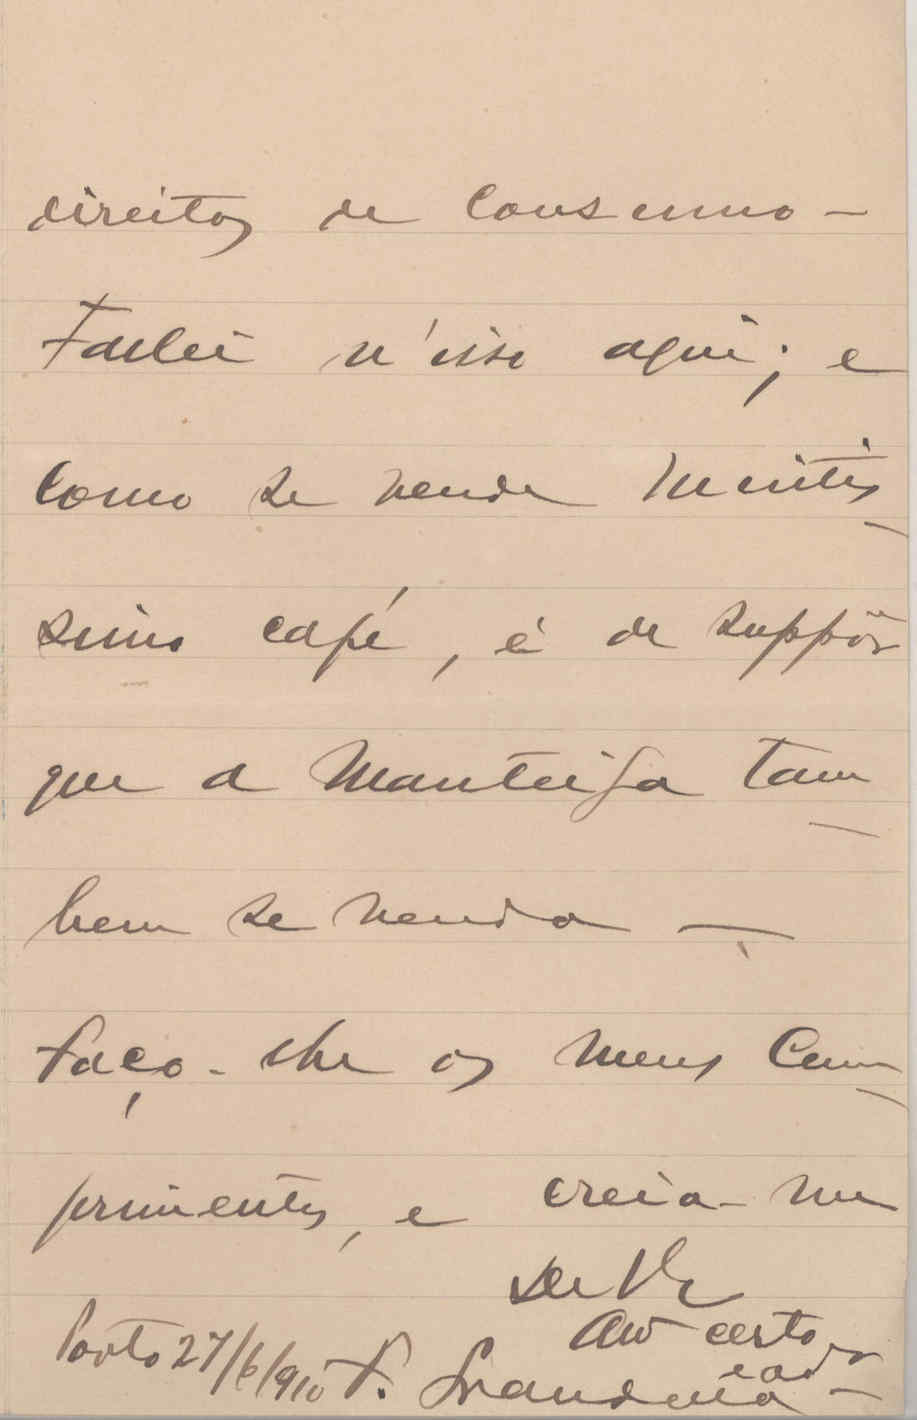 direitos de Consumo -
Fallei n'isso aqui; e
como se vende muitis-
simo café, é de suppôr
que a manteiga tam-
bem se venda —
Faço-lhe os meus Cum-
primentos, e creia-me
De V.
Am.º certo
Porto 27/6/910 F.